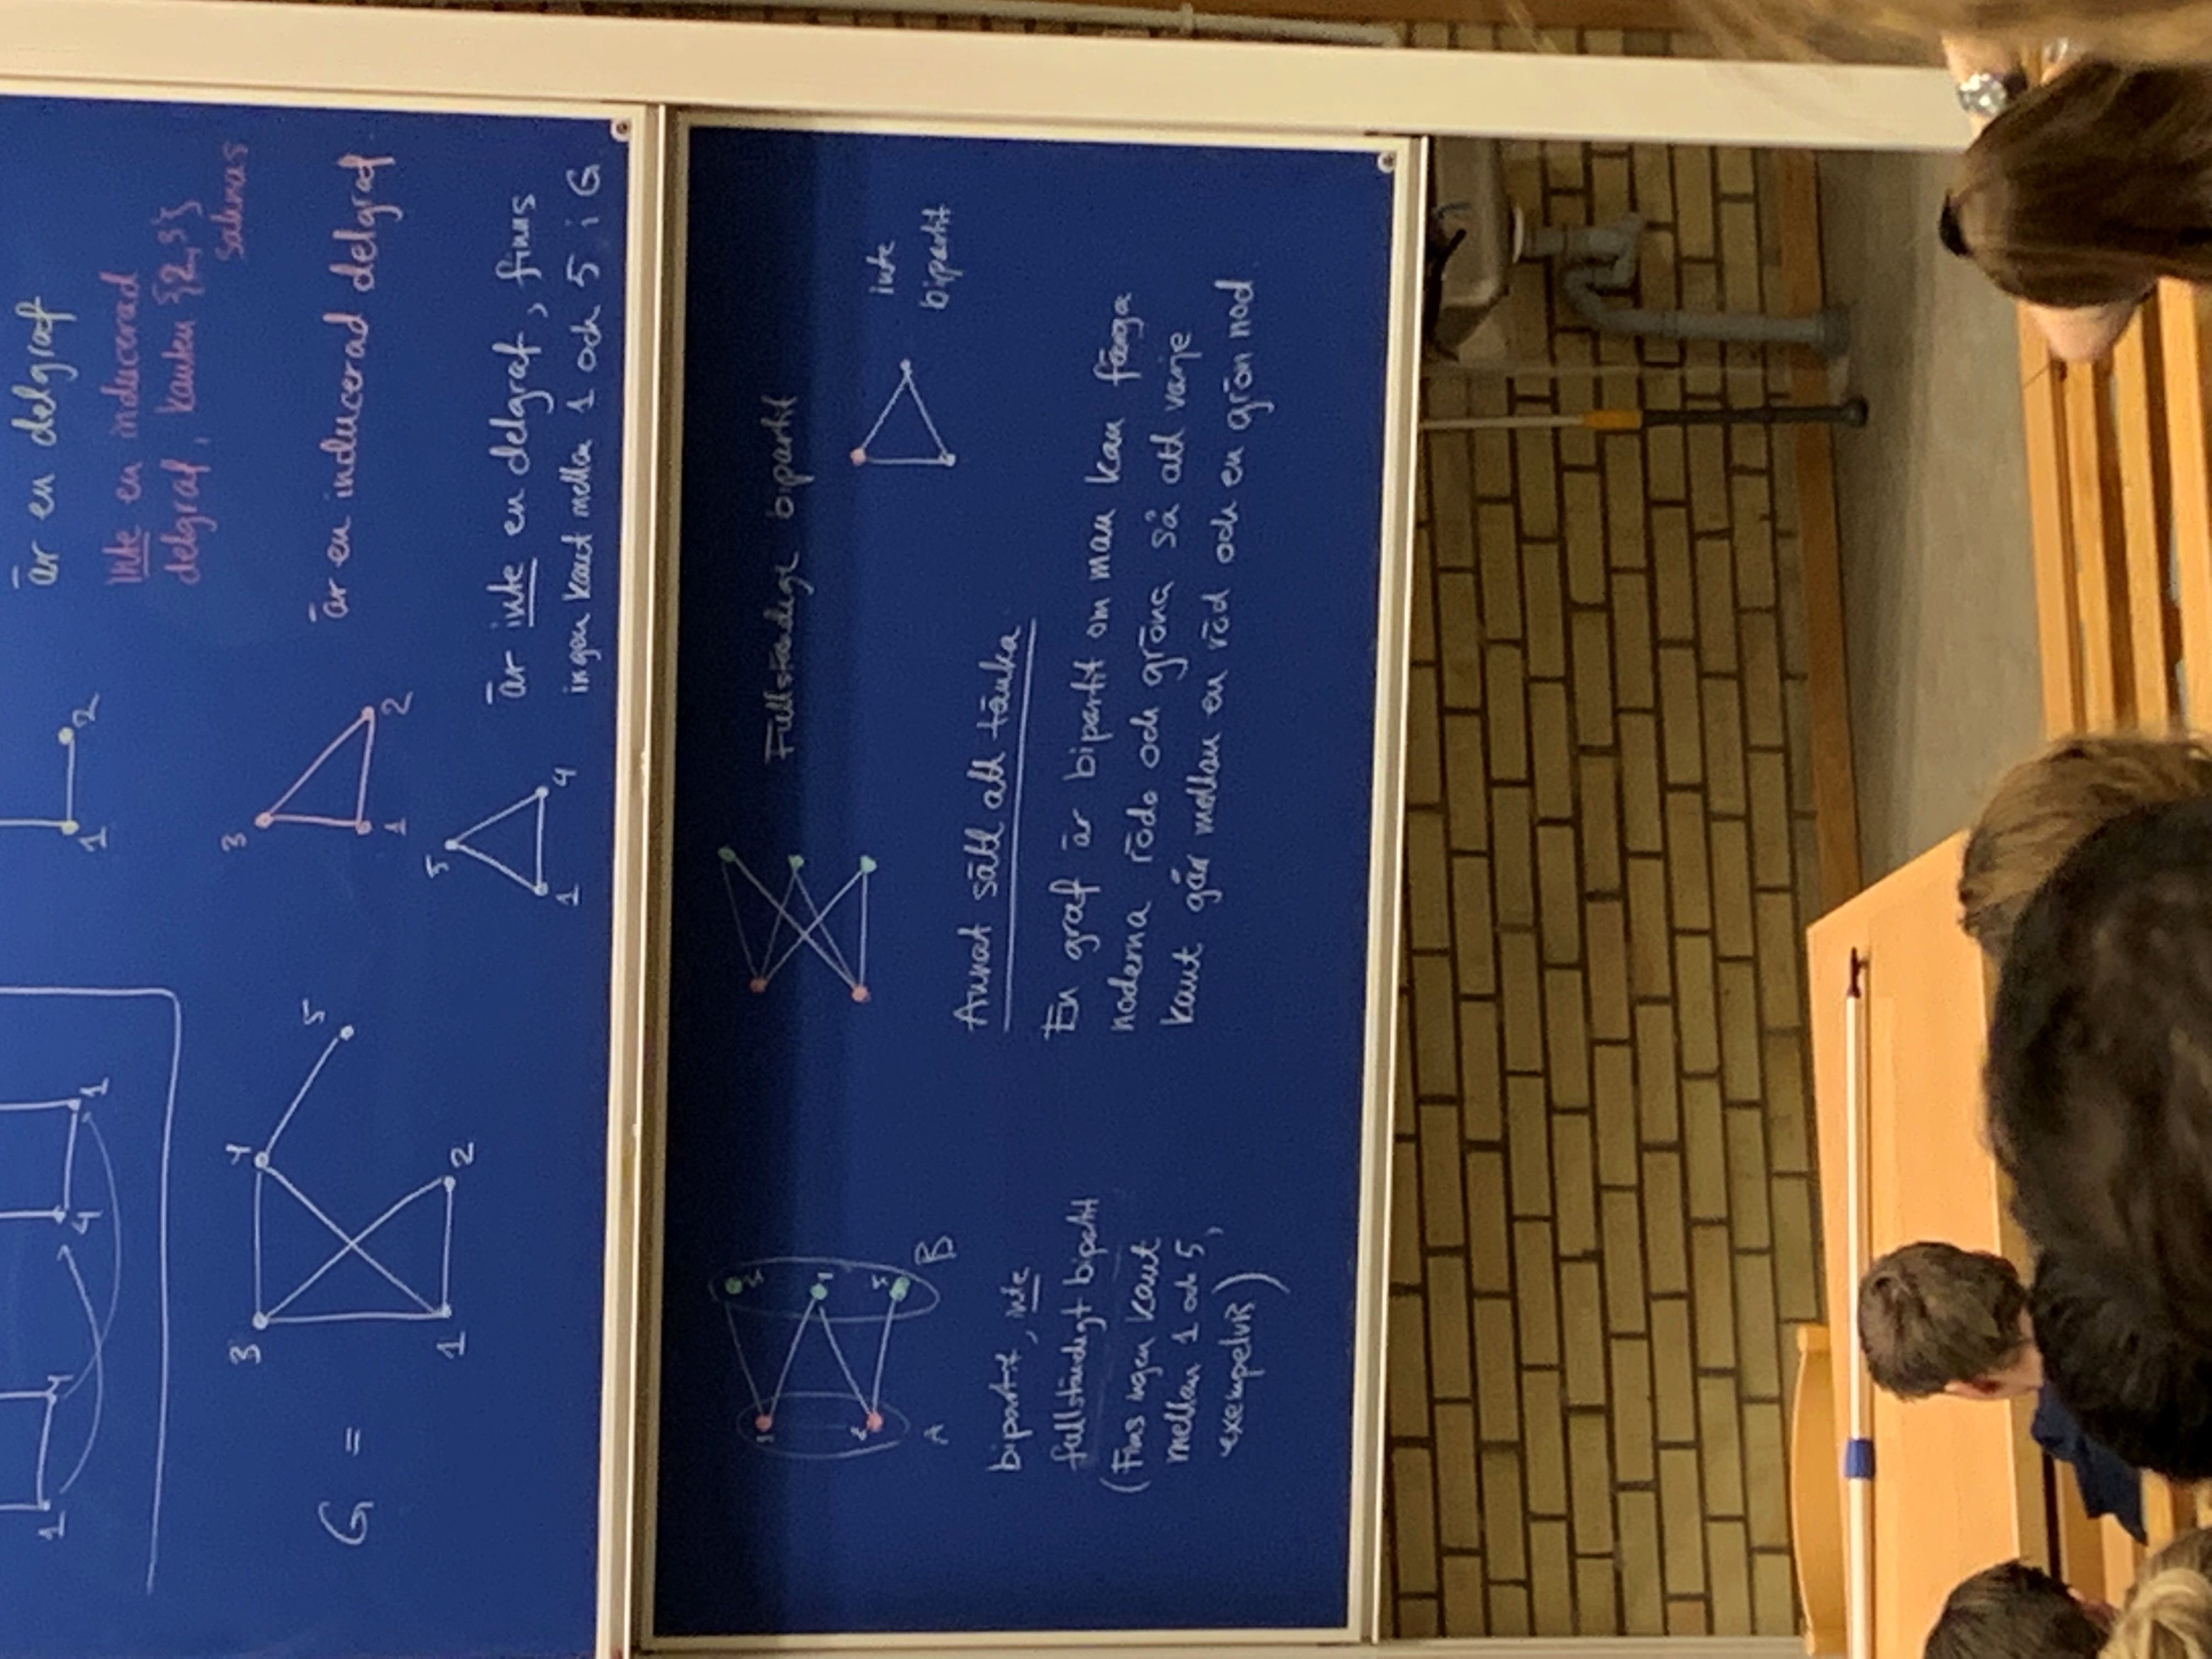 är en delgraf
inte en inducerad
delgraf, kanten {2,3}
saknas
1 2
1 4
4 1
G =
3 4 5
1 2
3
1 2
är en inducerad delgraf
5
1 4
är inte en delgraf, finns
ingen kant mella 1 och 5 i G
A B
bipartit, inte
fullständigt bipartit
(Finns ingen kant
mellan 1 och 5,
exempelvis)
Fullständige bipartit
inte
bipartit
Annat sätt att tänka
En graf är bipartit om man kan färga
noderna röda och gröna så att varje
kant går mellan en röd och en grön nod